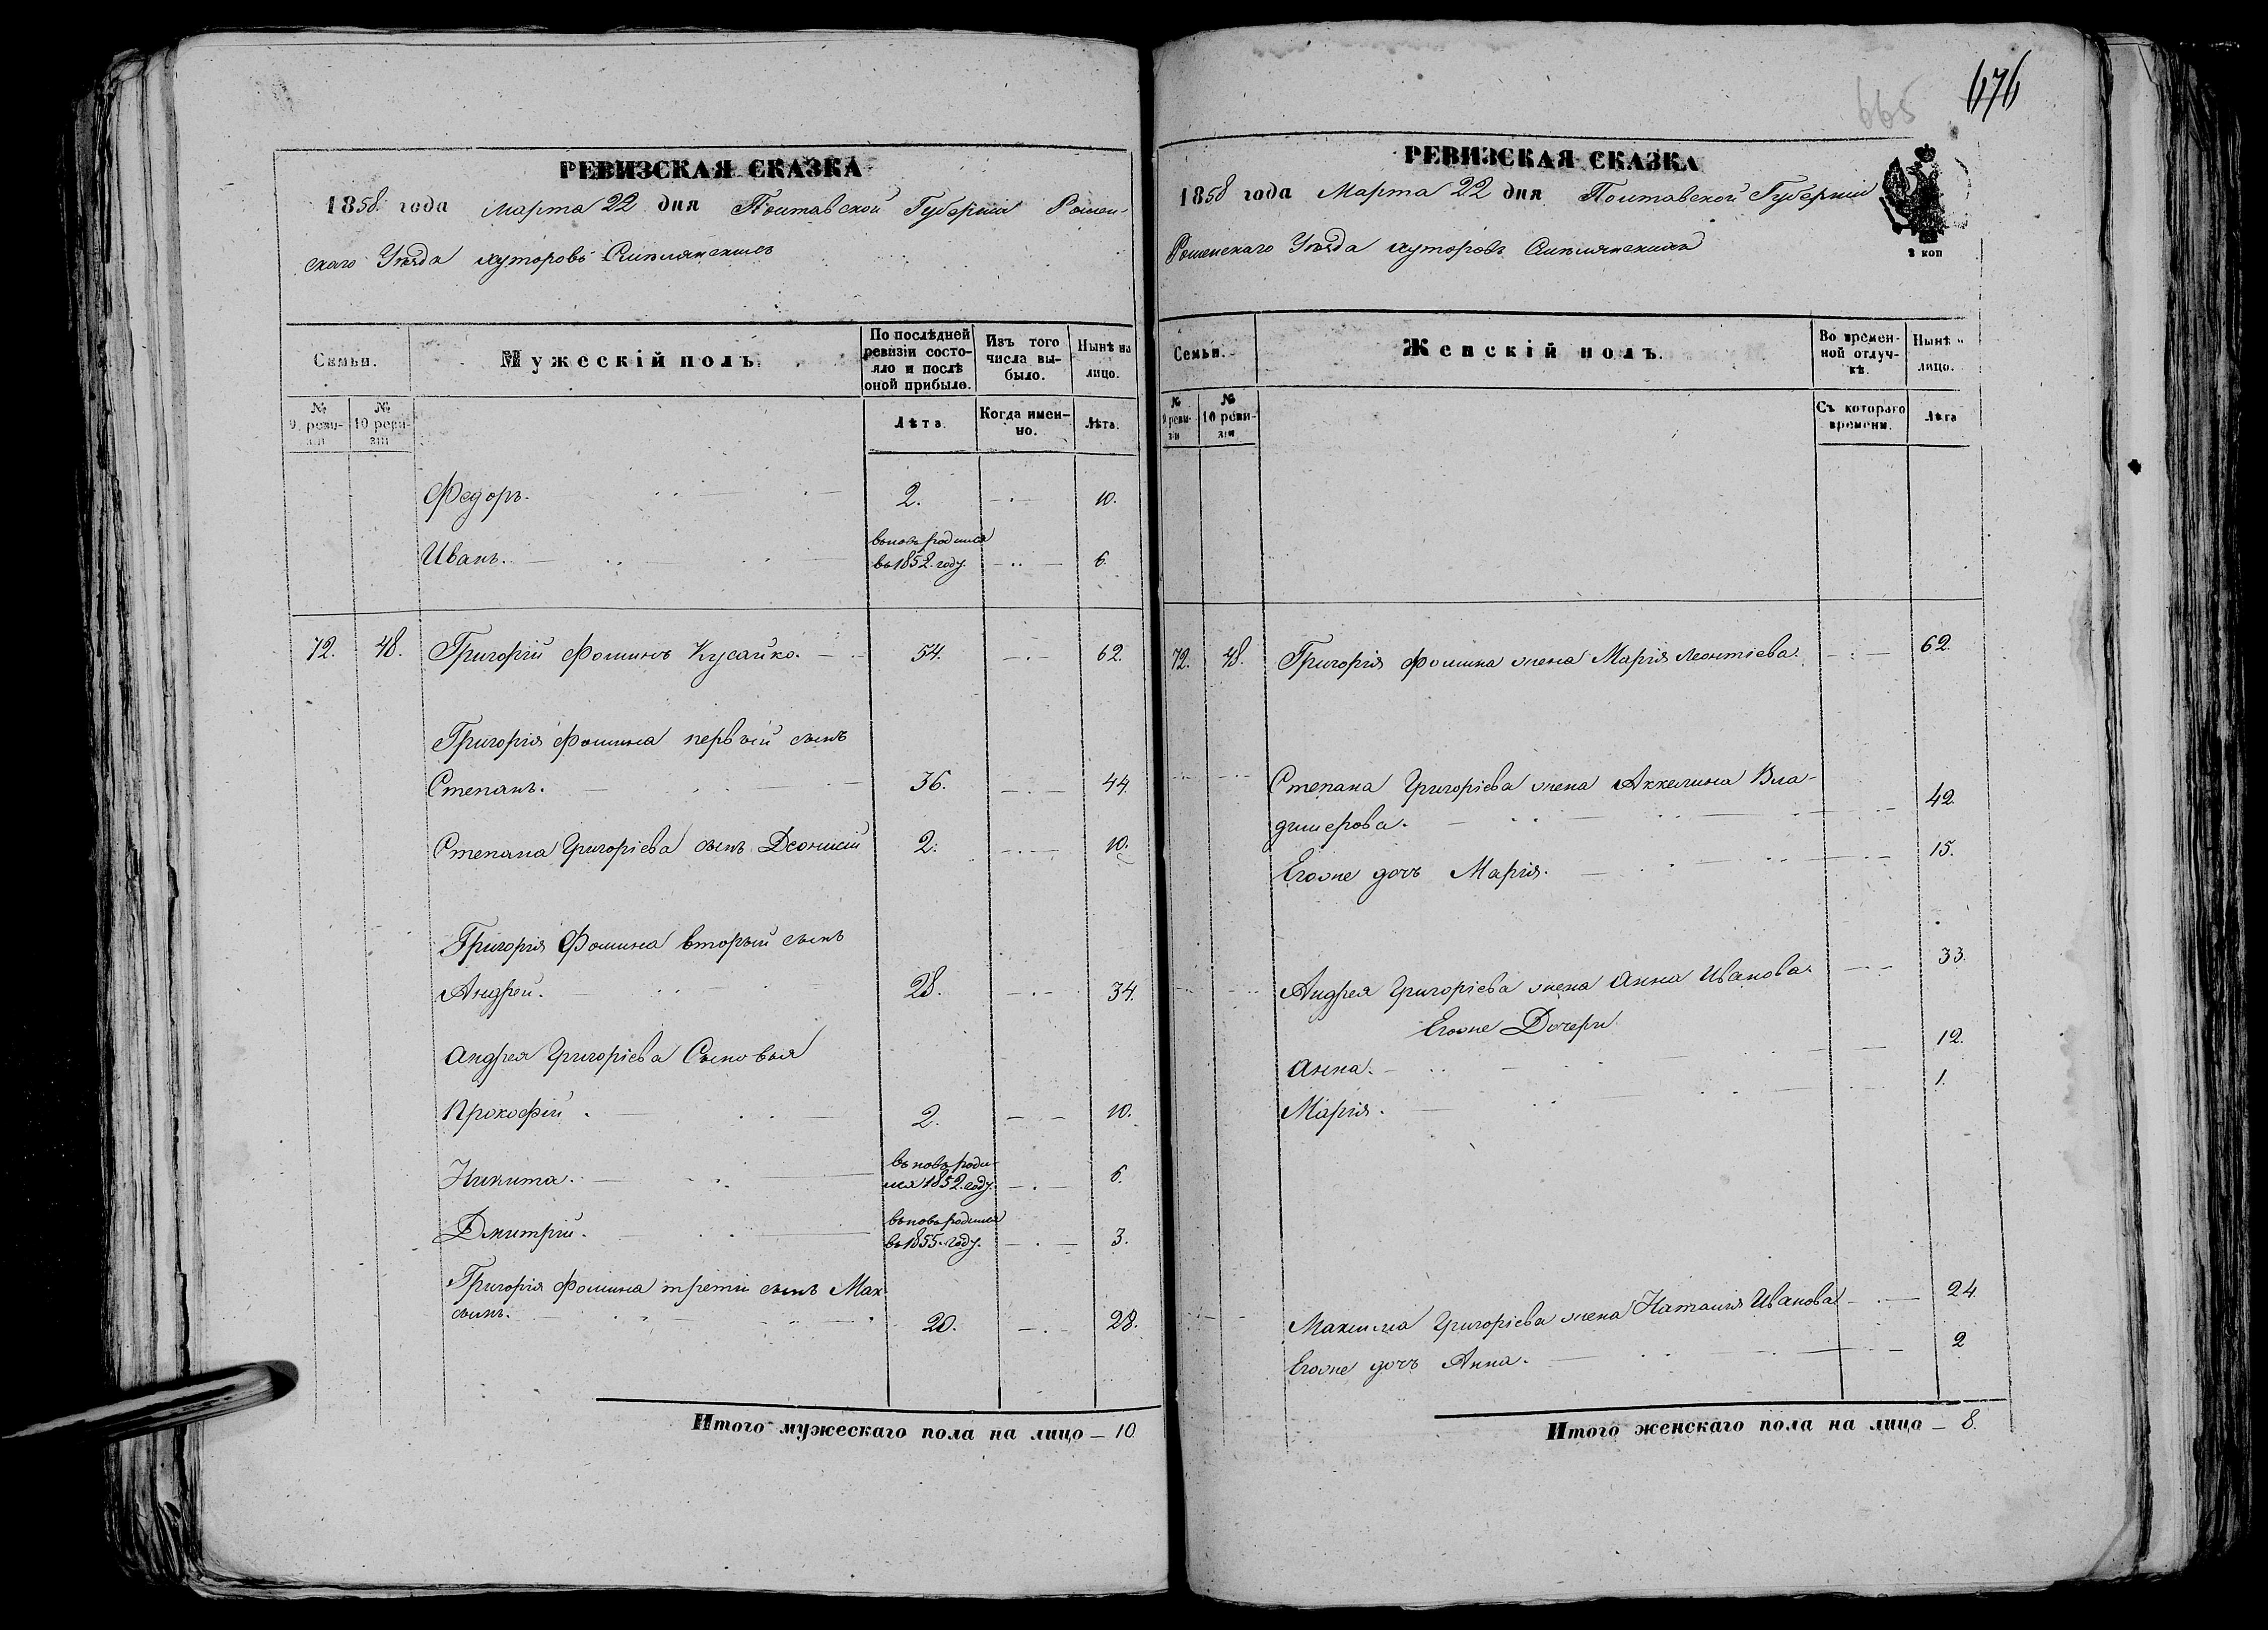 РЕВИЗСКАЯ СКАЗКА
1858. года Марта 22 дня Полтавской Губернiи Ромен-
скаго Уѣзда хуторовъ
Семьи.
Мужескiй полъ.
По послѣдней ревизiи состояло и послѣ оной прибыло.
Изъ того числа выбыло.
Нынѣ на лицо.
№ 9. ревизiи
№ 10 ревизiи
Лѣта.
Когда именно.
Лѣта.
Федоръ. 2. 10.
вновь родился
Иванъ. въ 1852. году. 6.
72. 48. Григорiй Фоминъ Кусайко. 54. 62.
Григорiя Фомина первый сынъ
Степанъ. 36. 44.
Степана Григорiева сынъ Деонисiй 2. 10.
Григорiя Фомина вторый сынъ
Андрей. 28. 34.
Андрея Григорiева Сыновья
Прокофiй. 2. 10.
вновь роди-
Никита. лся 1852. году. 6.
вновь родился
Дмитрiй. въ 1855. году. 3.
Григорiя Фомина третiй сынъ Мак-
симъ. 20. 28.
Итого мужескаго пола на лицо – 10
665
676
РЕВИЗСКАЯ СКАЗКА
1858 года Марта 22 дня Полтавской Губернiи
Роменскаго Уѣзда хуторовъ
2 коп
Семьи.
Женскiй полъ.
Во временной отлучкѣ.
Нынѣ на лицо.
№ 9 ревизiи
№ 10 ревизiи
Съ котораго времени.
Лѣта
72. 48. Григорiя Фомина жена Марiя Леонтiева. 62.
Степана Григорiева жена Аккелина Вла-
димерова. 42.
Егоже дочь Марiя. 15.
Андрея Григорiева жена Анна Иванова. 33.
Егоже Дочери
Анна. 12.
Марiя. 1.
Максима Григорiева жена Наталiя Иванова 24.
Егоже дочь Анна. 2
Итого женскаго пола на лицо – 8.